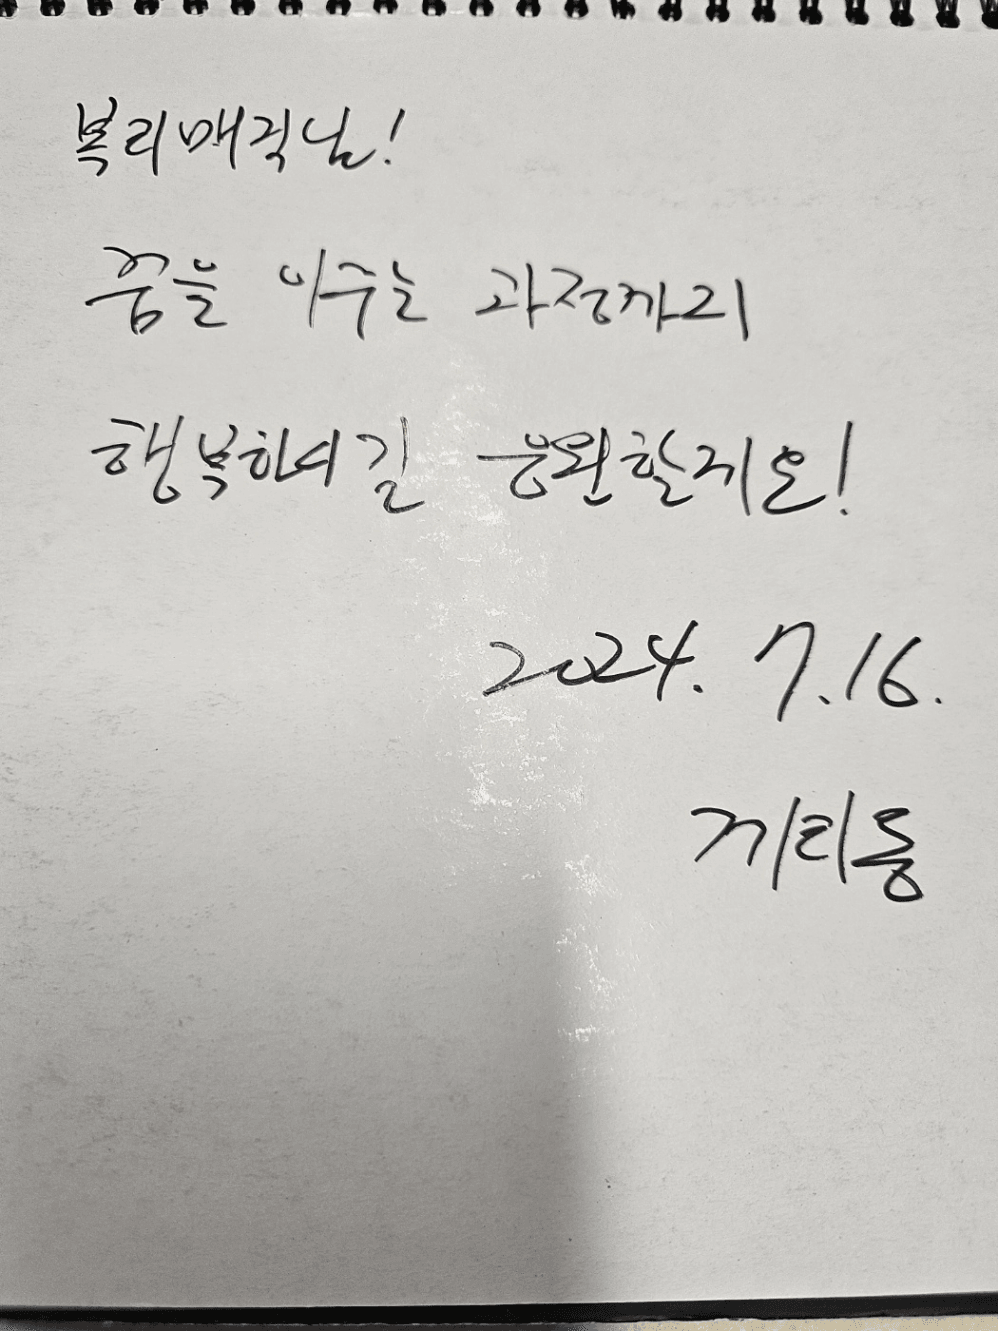 복리매직님!
꿈을 이루는 과정까지
행복하시길 응원할게요!
2024. 7. 16.